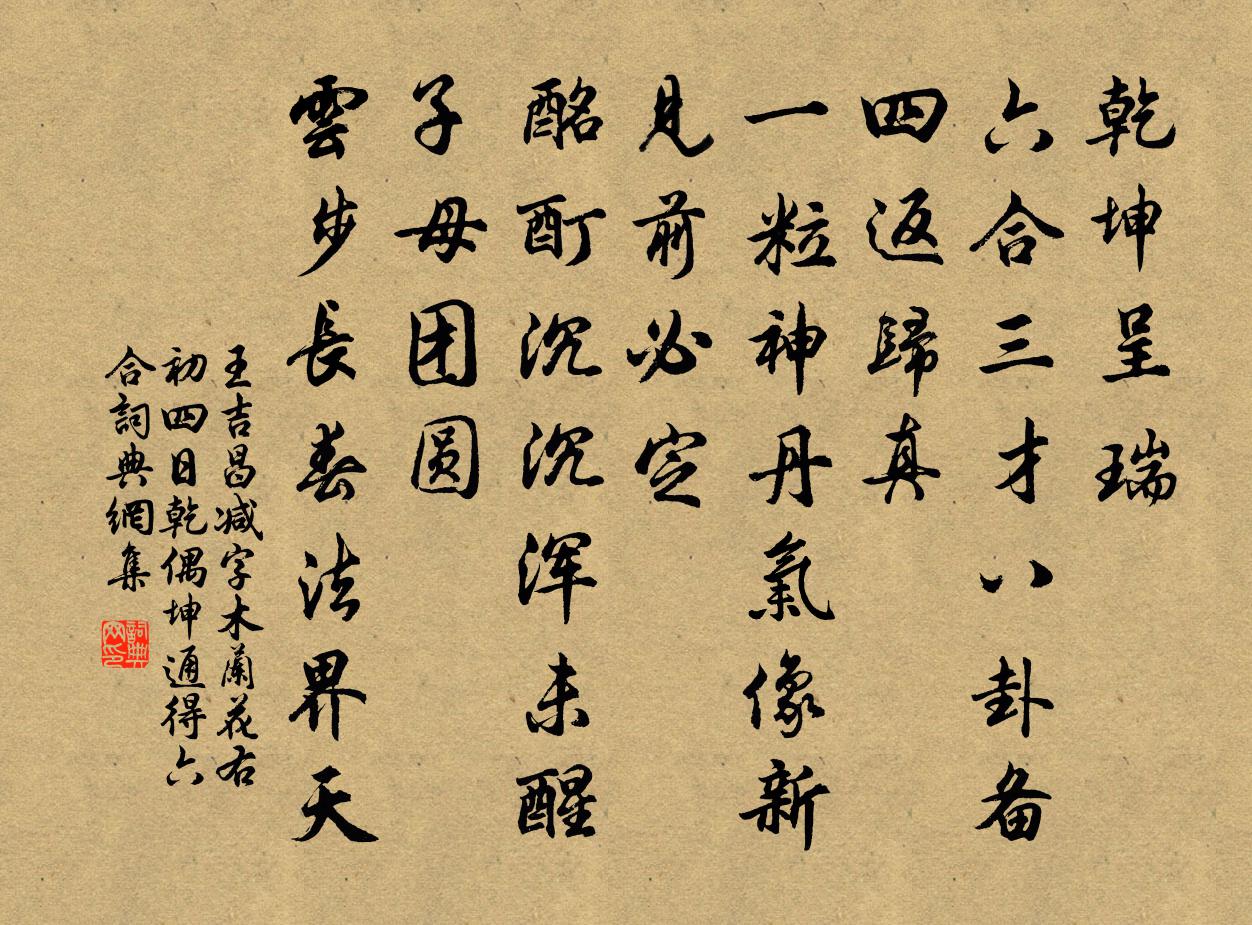 乾坤呈瑞
六合三才八卦备
四返歸真
一粒神丹氣像新
見前必定
酩酊沉沉浑未醒
子母团圆
雲步長春法界天
王吉昌减字木蘭花右
初四日乾偶坤通得六
合詞典網集
詞典网印